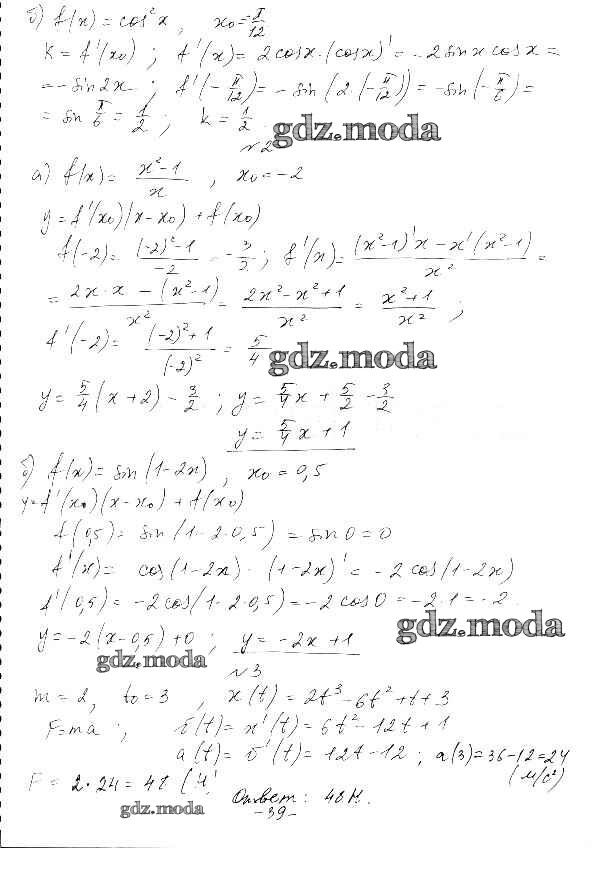 б) f(x) = cos²x , x₀ = -π/12
k = f'(x₀) ; f'(x) = 2cosx·(cosx)' = -2sinx cosx =
= -sin2x ; f'(-π/12) = -sin(2·(-π/12)) = -sin(-π/6) =
= sin π/6 = 1/2 ; k = 1/2 .
gdz.moda
№2
а) f(x) = (x²-1)/x , x₀ = -2
y = f'(x₀)(x-x₀) + f(x₀)
f(-2) = ((-2)²-1)/-2 = -3/2 ; f'(x) = ((x²-1)'x - x'(x²-1))/x² =
= (2x·x - (x²-1))/x² = (2x²-x²+1)/x² = (x²+1)/x² ;
f'(-2) = ((-2)²+1)/(-2)² = 5/4
gdz.moda
y = 5/4 (x+2) - 3/2 ; y = 5/4 x + 5/2 - 3/2
y = 5/4 x + 1
б) f(x) = sin(1-2x) , x₀ = 0,5
y = f'(x₀)(x-x₀) + f(x₀)
f(0,5) = sin(1-2·0,5) = sin0 = 0
f'(x) = cos(1-2x)·(1-2x)' = -2cos(1-2x)
f'(0,5) = -2cos(1-2·0,5) = -2cos0 = -2·1 = -2
y = -2(x-0,5)+0 ; y = -2x+1
gdz.moda
gdz.moda
№3
m = 2, t₀ = 3 , x(t) = 2t³-6t²+t+3
F=ma ; v(t) = x'(t) = 6t²-12t+1
a(t) = v'(t) = 12t-12 ; a(3)=36-12=24
(м/с²)
F = 2·24 = 48 (Н)
Ответ: 48 Н.
-39-
gdz.moda